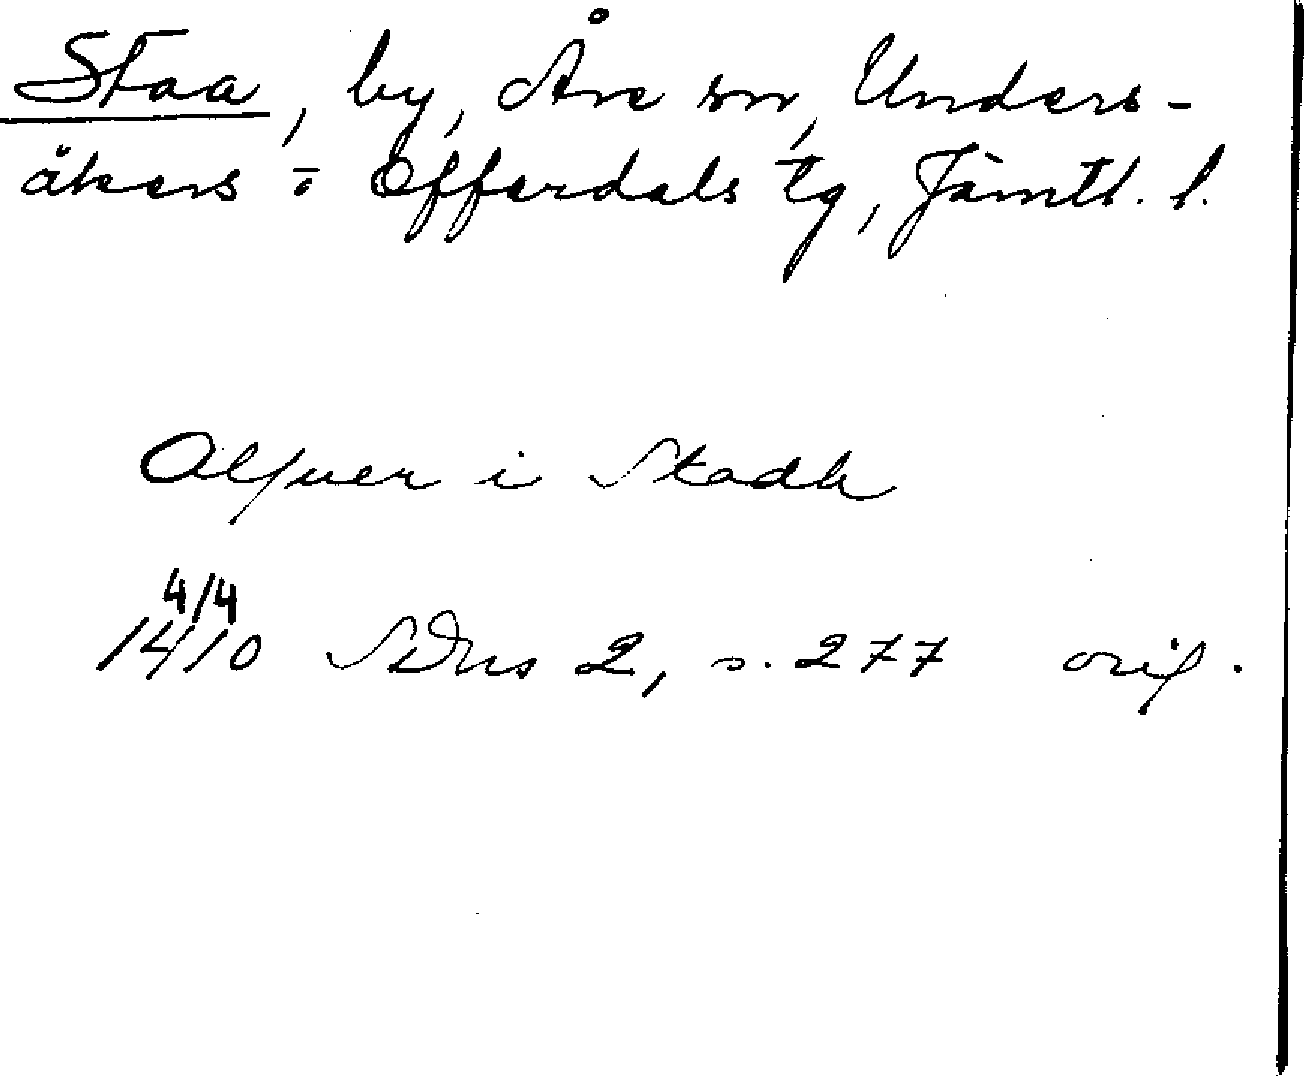 Staa, by, Åre sn, Unders-
åkers o Offerdals tg, Jämtl. l.
Alfuer i Stadh
4/4
1410 SDns 2, s. 277 orig.